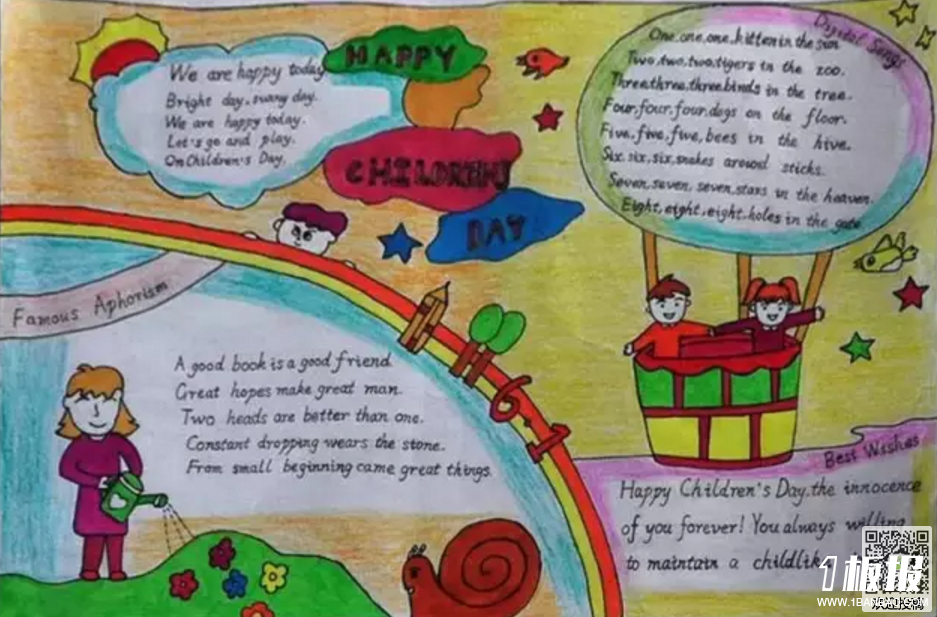 We are happy today
Bright day, sunny day.
We are happy today.
Let's go and play.
On Children's Day.
HAPPY
CHILDREN'S
DAY
Digital Songs
One, one, one, kitten in the sun
Two, two, two, tigers in the zoo.
Three, three, three, birds in the tree.
Four, four, four, dogs on the floor.
Five, five, five, bees in the hive.
Six, six, six, snakes around sticks.
Seven, seven, seven, stars in the heaven.
Eight, eight, eight, holes in the gate
Famous Aphorism
A good book is a good friend.
Great hopes make great man.
Two heads are better than one.
Constant dropping wears the stone.
From small beginning came great things.
6
1
Best Wishes
Happy Children's Day, the innocence
of you forever! You always willing
to maintain a childlike
1板报
WWW.1BANBAO.COM
欢迎投稿